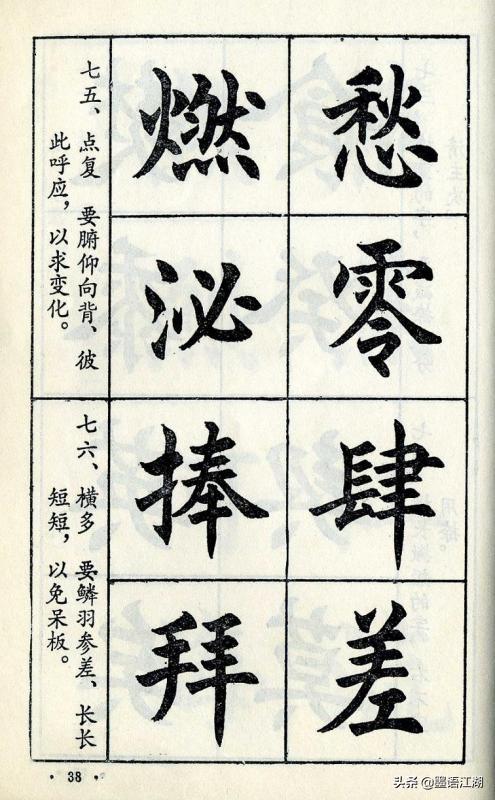 愁 燃
零 泌
七五、点复 要腑仰向背、彼
此呼应，以求变化。
肆 捧
差 拜
七六、横多 要鳞羽参差、长长
短短，以免呆板。
·38·
头条 @墨语江湖